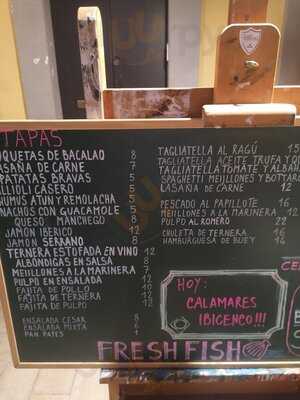 TAPAS
OQUETAS DE BACALAO 8
ASAÑA DE CARNE 7
PATATAS BRAVAS 5
ALLIOLI CASERO 5
HUMUS ATUN Y REMOLACHA 5
NACHOS CON GUACAMOLE 5
QUESO MANCHEGO 8
JAMÓN IBERICO 12
JAMON SERRANO 8
TERNERA ESTOFADA EN VINO 12
ALBÓNDIGAS EN SALSA 8
MEJILLONES A LA MARINERA 7
PULPO EN ENSALADO 12
FAJITA DE POLLO 10
FAJITA DE TERNERA 12
FAJITA DE PULPO 12
ENSALADA CESAR 8
ENSALADA MIXTA 6
PAN PAYES 1
TAGLIATELLA AL RAGÚ
TAGLIATELLA ACEITE TRUFA Y
TAGLIATELLA TOMATE Y
SPAGHETTI MEJILLONES Y
LASAÑA DE CARNE 12
PESCADO AL PAPILLOTE 16
MEJILLONES A LA MARINERA 12
PULPO AL ROMERO 12
CHULETA DE TERNERA 16
HAMBURGUESA DE BUEY 14
HOY:
CALAMARES
IBICENCO!!!
FRESH FISH